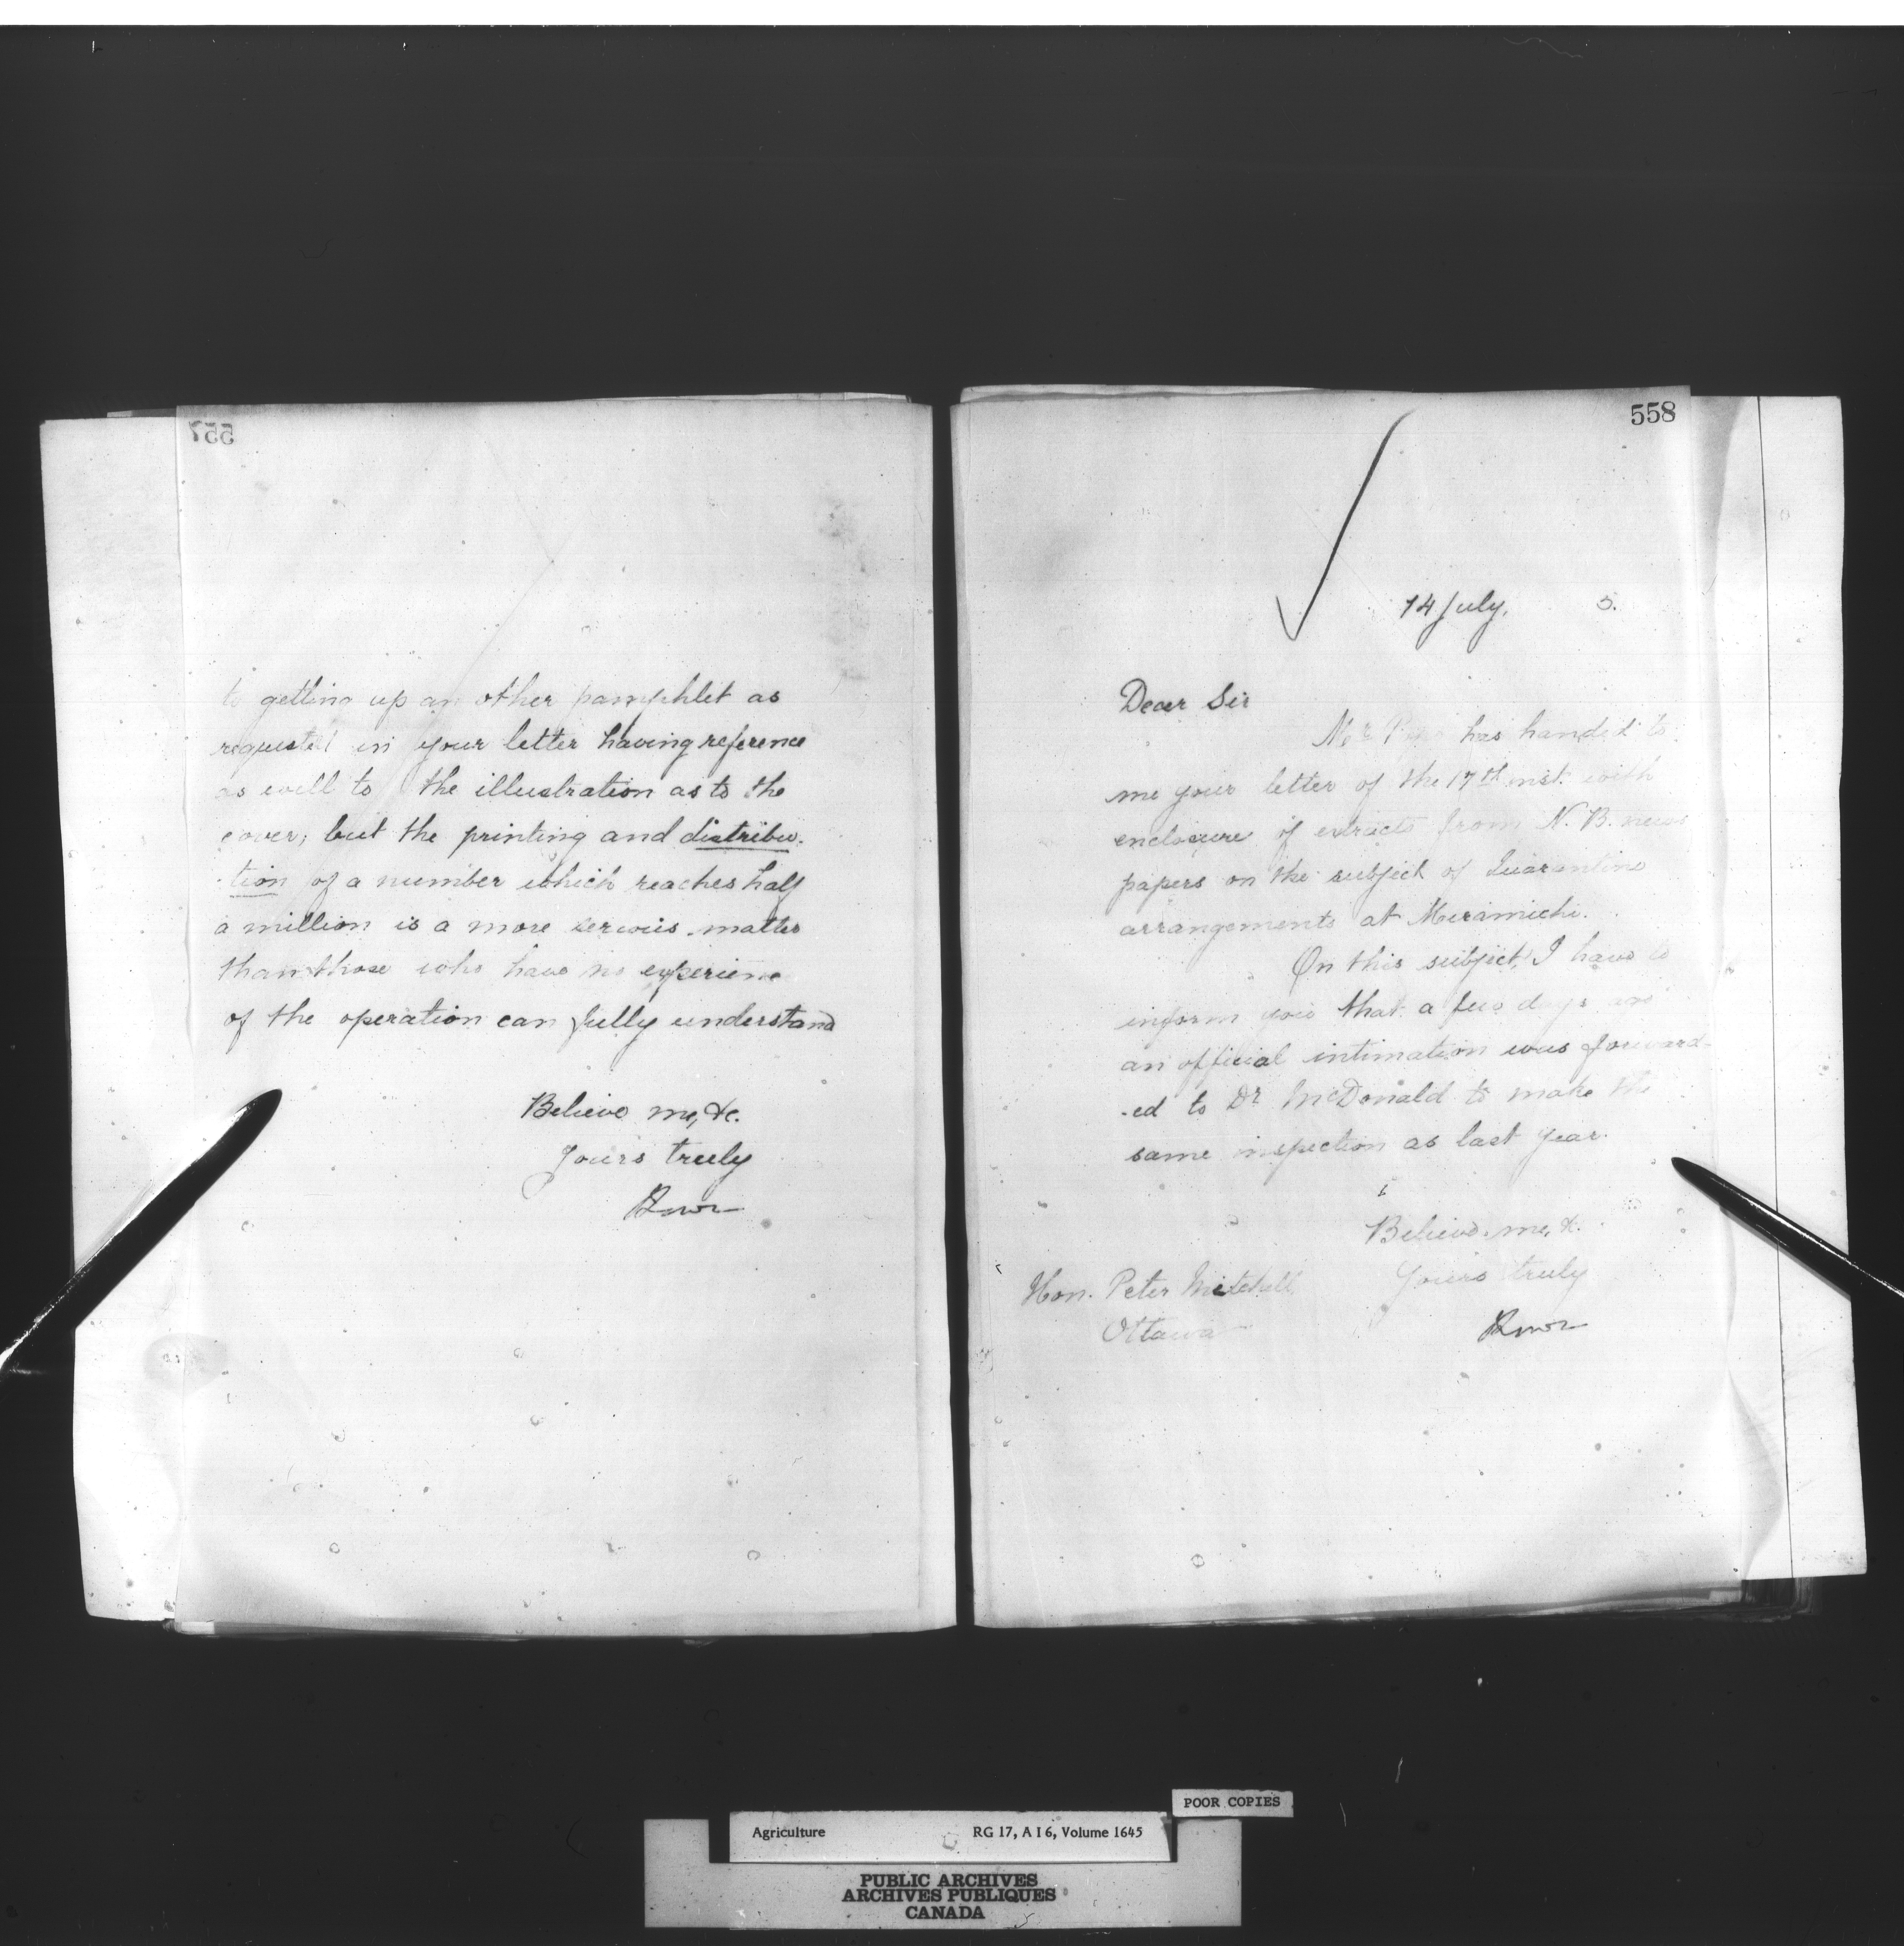 557
to getting up an other pamphlet as
requested in your letter having reference
as well to the illustration as to the
cover; but the printing and distribu-
tion of a number which reaches half
a million is a more serious matter
than those who have no experience
of the operation can fully understand
Believe me, &c.
Yours truly
558
14 July, 5.
Dear Sir
Mr Pope has handed to
me your letter of the 17th inst. with
enclosure of extracts from N. B. news
papers on the subject of Quarantine
arrangements at Miramichi.
On this subject, I have to
inform you that a few days ago
an official intimation was forward-
-ed to Dr McDonald to make the
same inspection as last year.
Believe me, &c.
Yours truly
Hon. Peter Mitchell,
Ottawa
POOR COPIES
Agriculture RG 17, A I 6, Volume 1645
PUBLIC ARCHIVES
ARCHIVES PUBLIQUES
CANADA